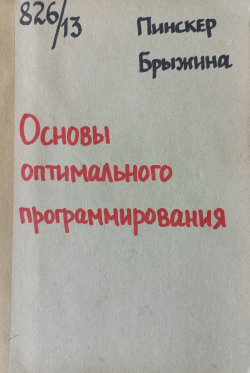 826/13
Пинскер
Брыжина
Основы
оптимального
программирования